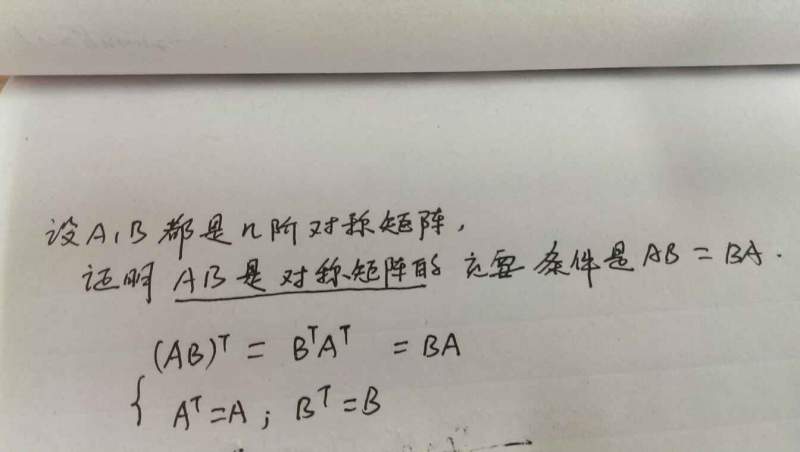 设A,B都是n阶对称矩阵,
证明AB是对称矩阵的充要条件是AB=BA.
(AB)ᵀ = BᵀAᵀ = BA
{ Aᵀ=A; Bᵀ=B